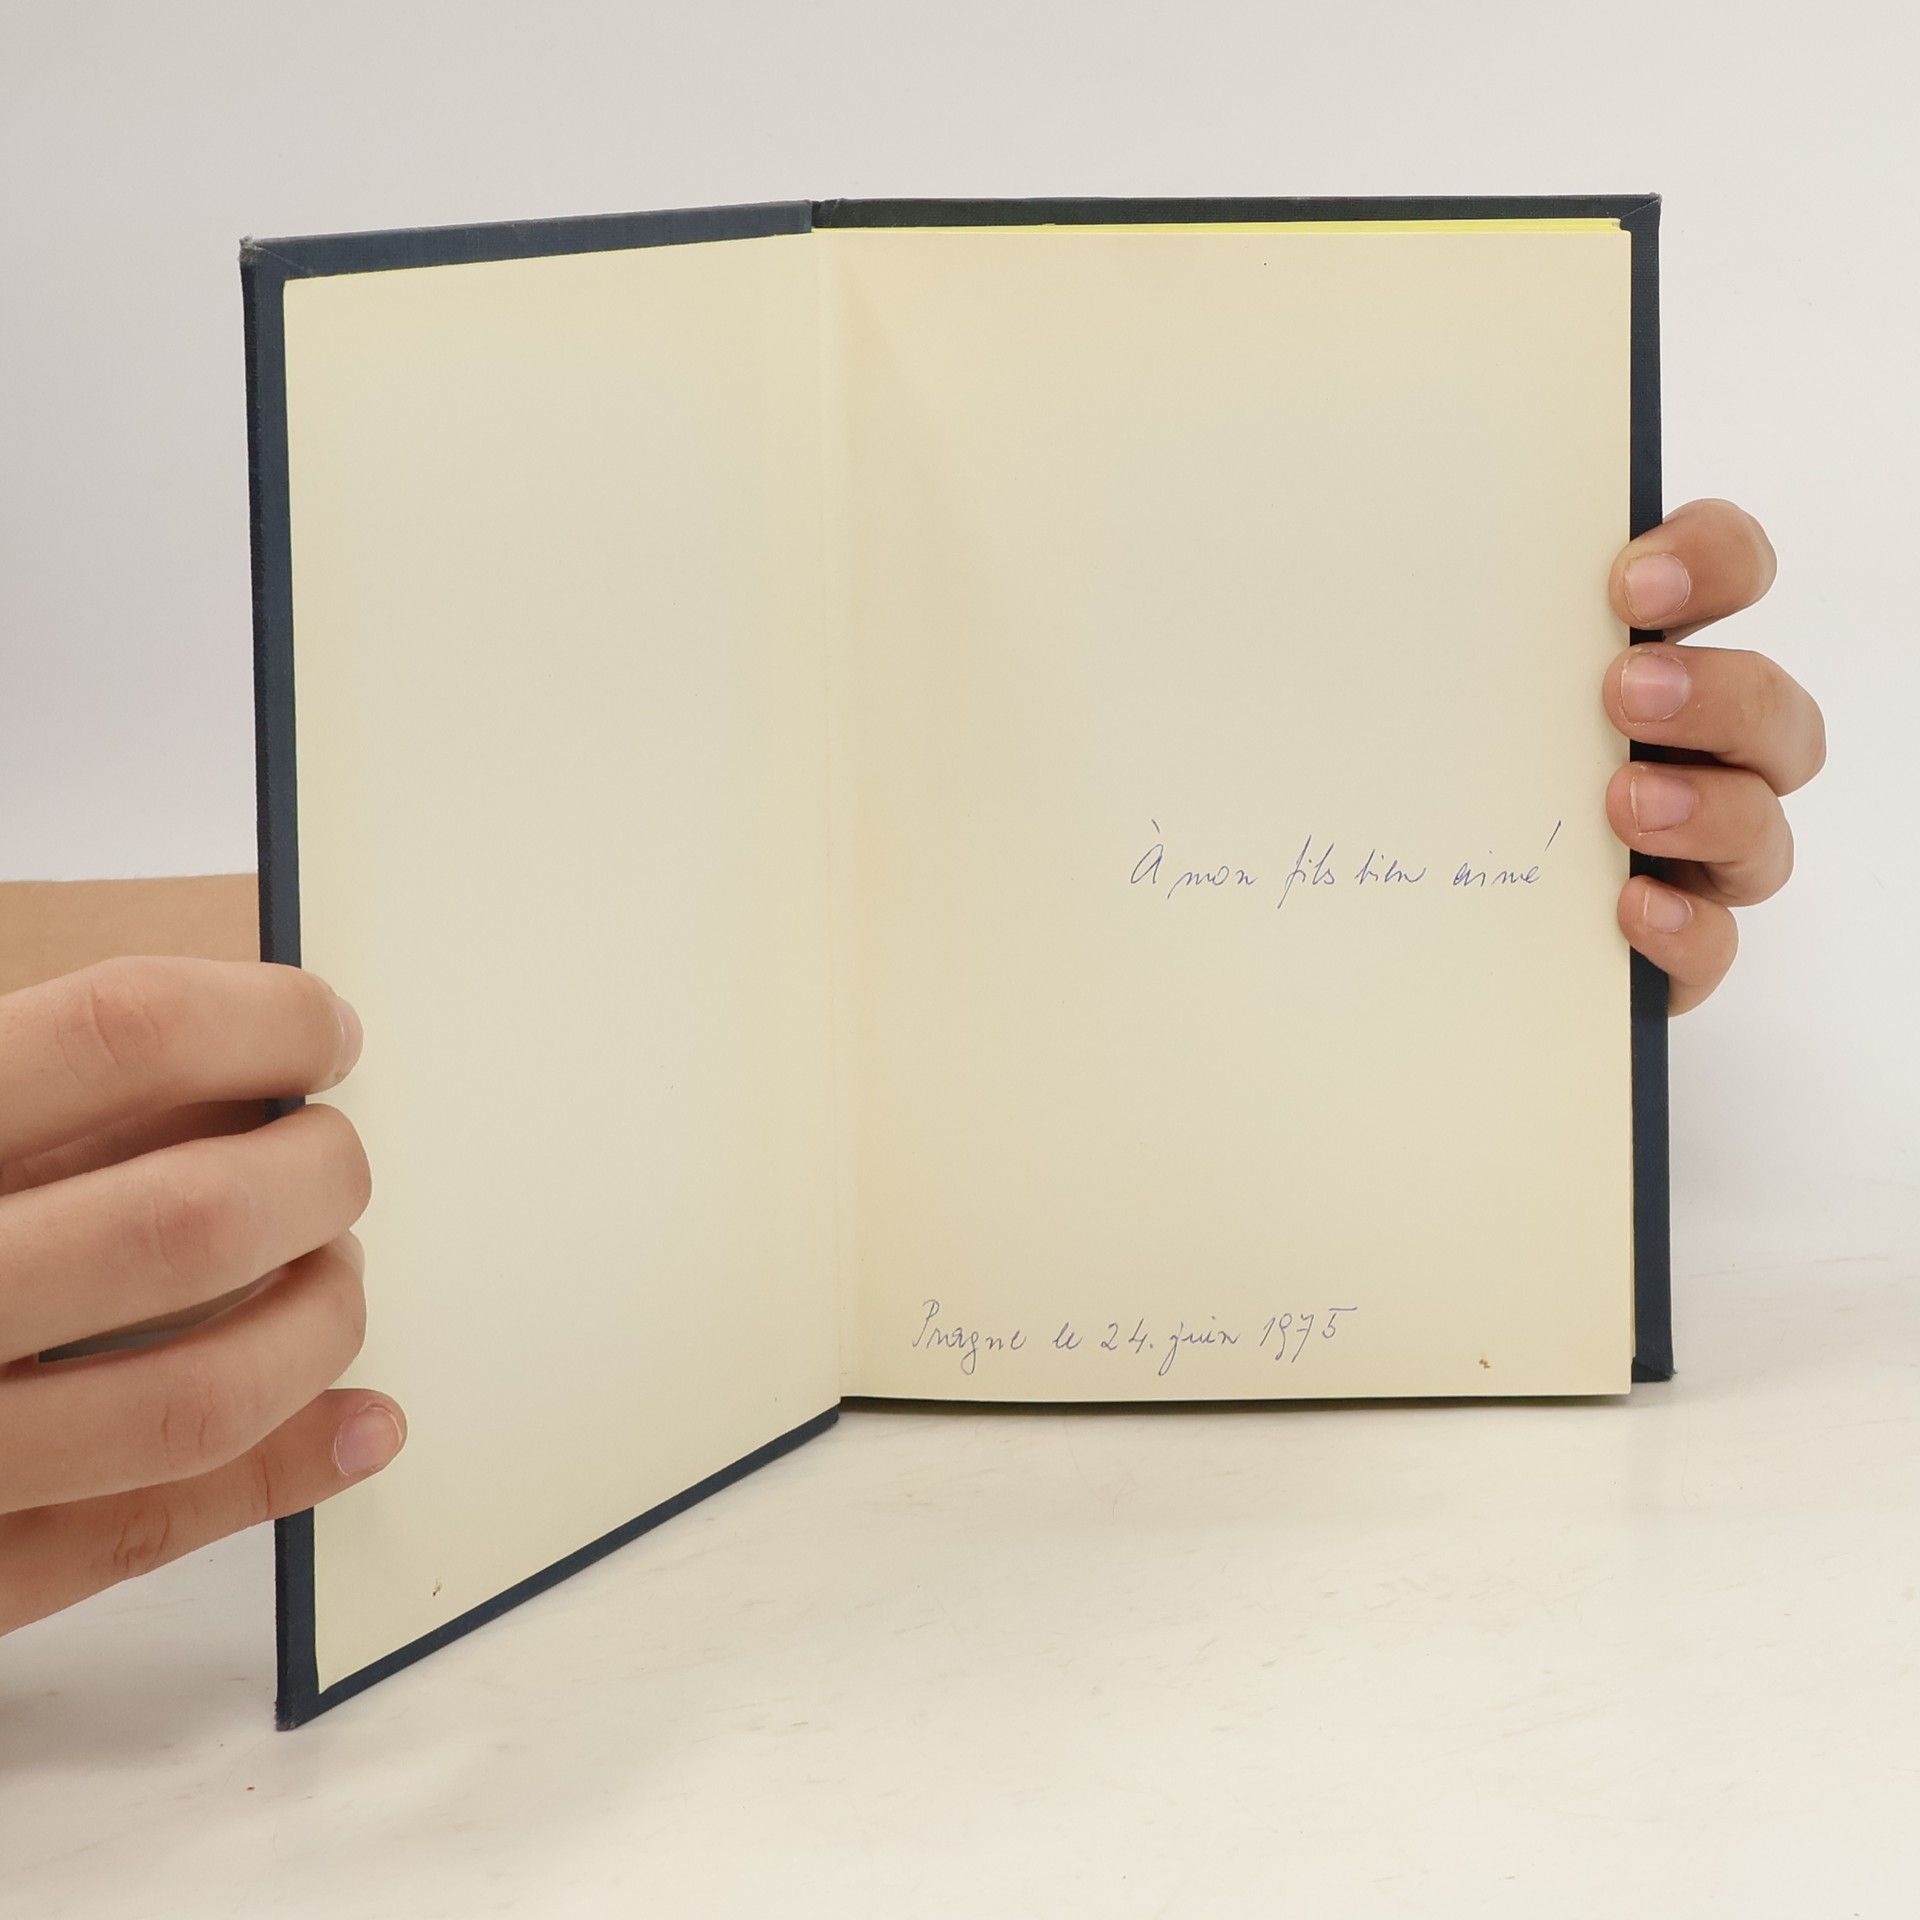 À mon fils bien aimé
Prague le 24. juin 1975